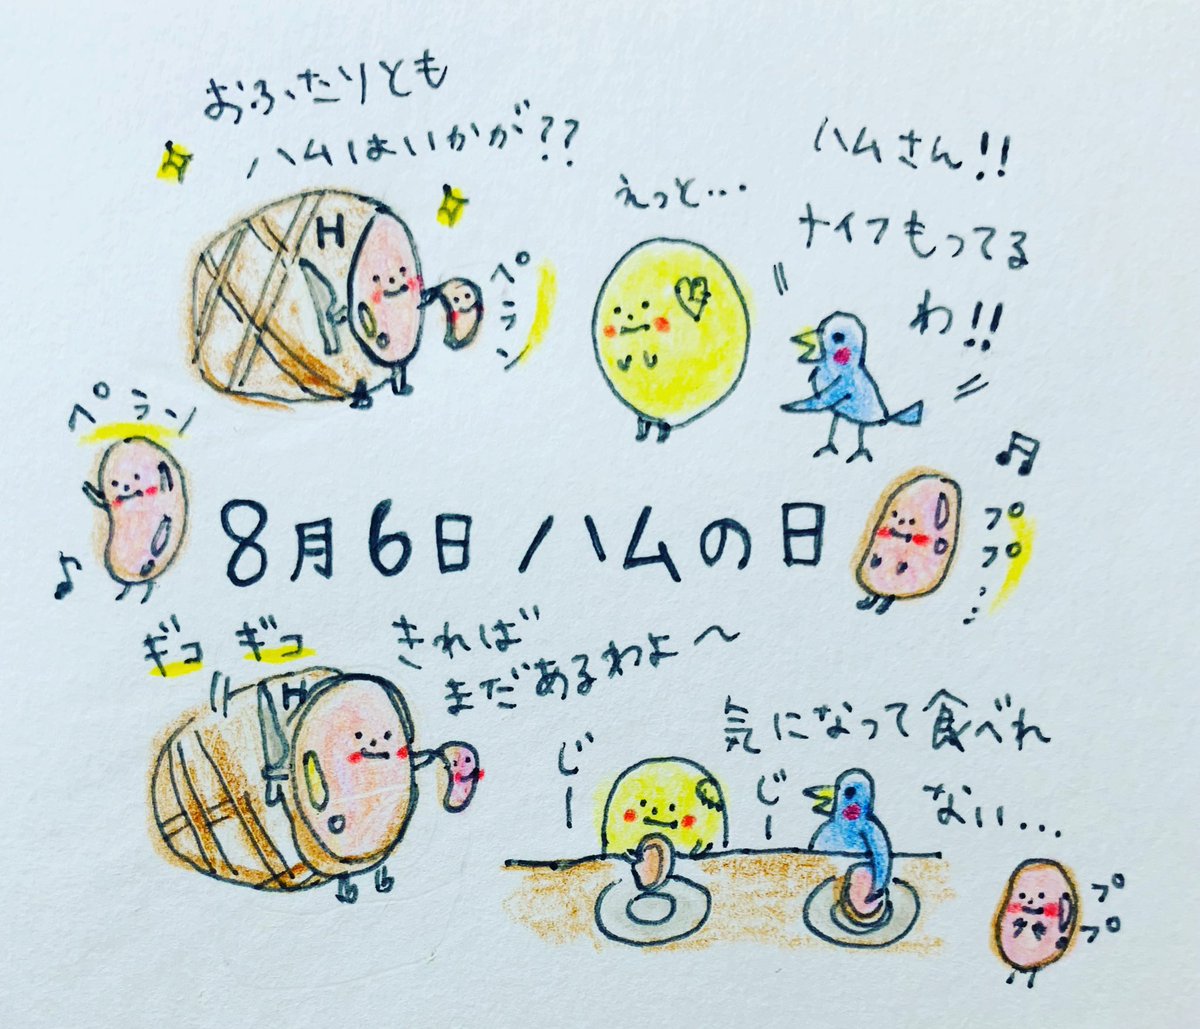 おふたりとも
ハムはいかが??
H
ペラン
えっと…
ハムさん!!
ナイフもってる
わ!!
ペラン
8月6日 ハムの日
ププ…
ギコ ギコ
きれば
まだあるわよ〜
H
じー
じー
気になって食べれ
ない…
ププ